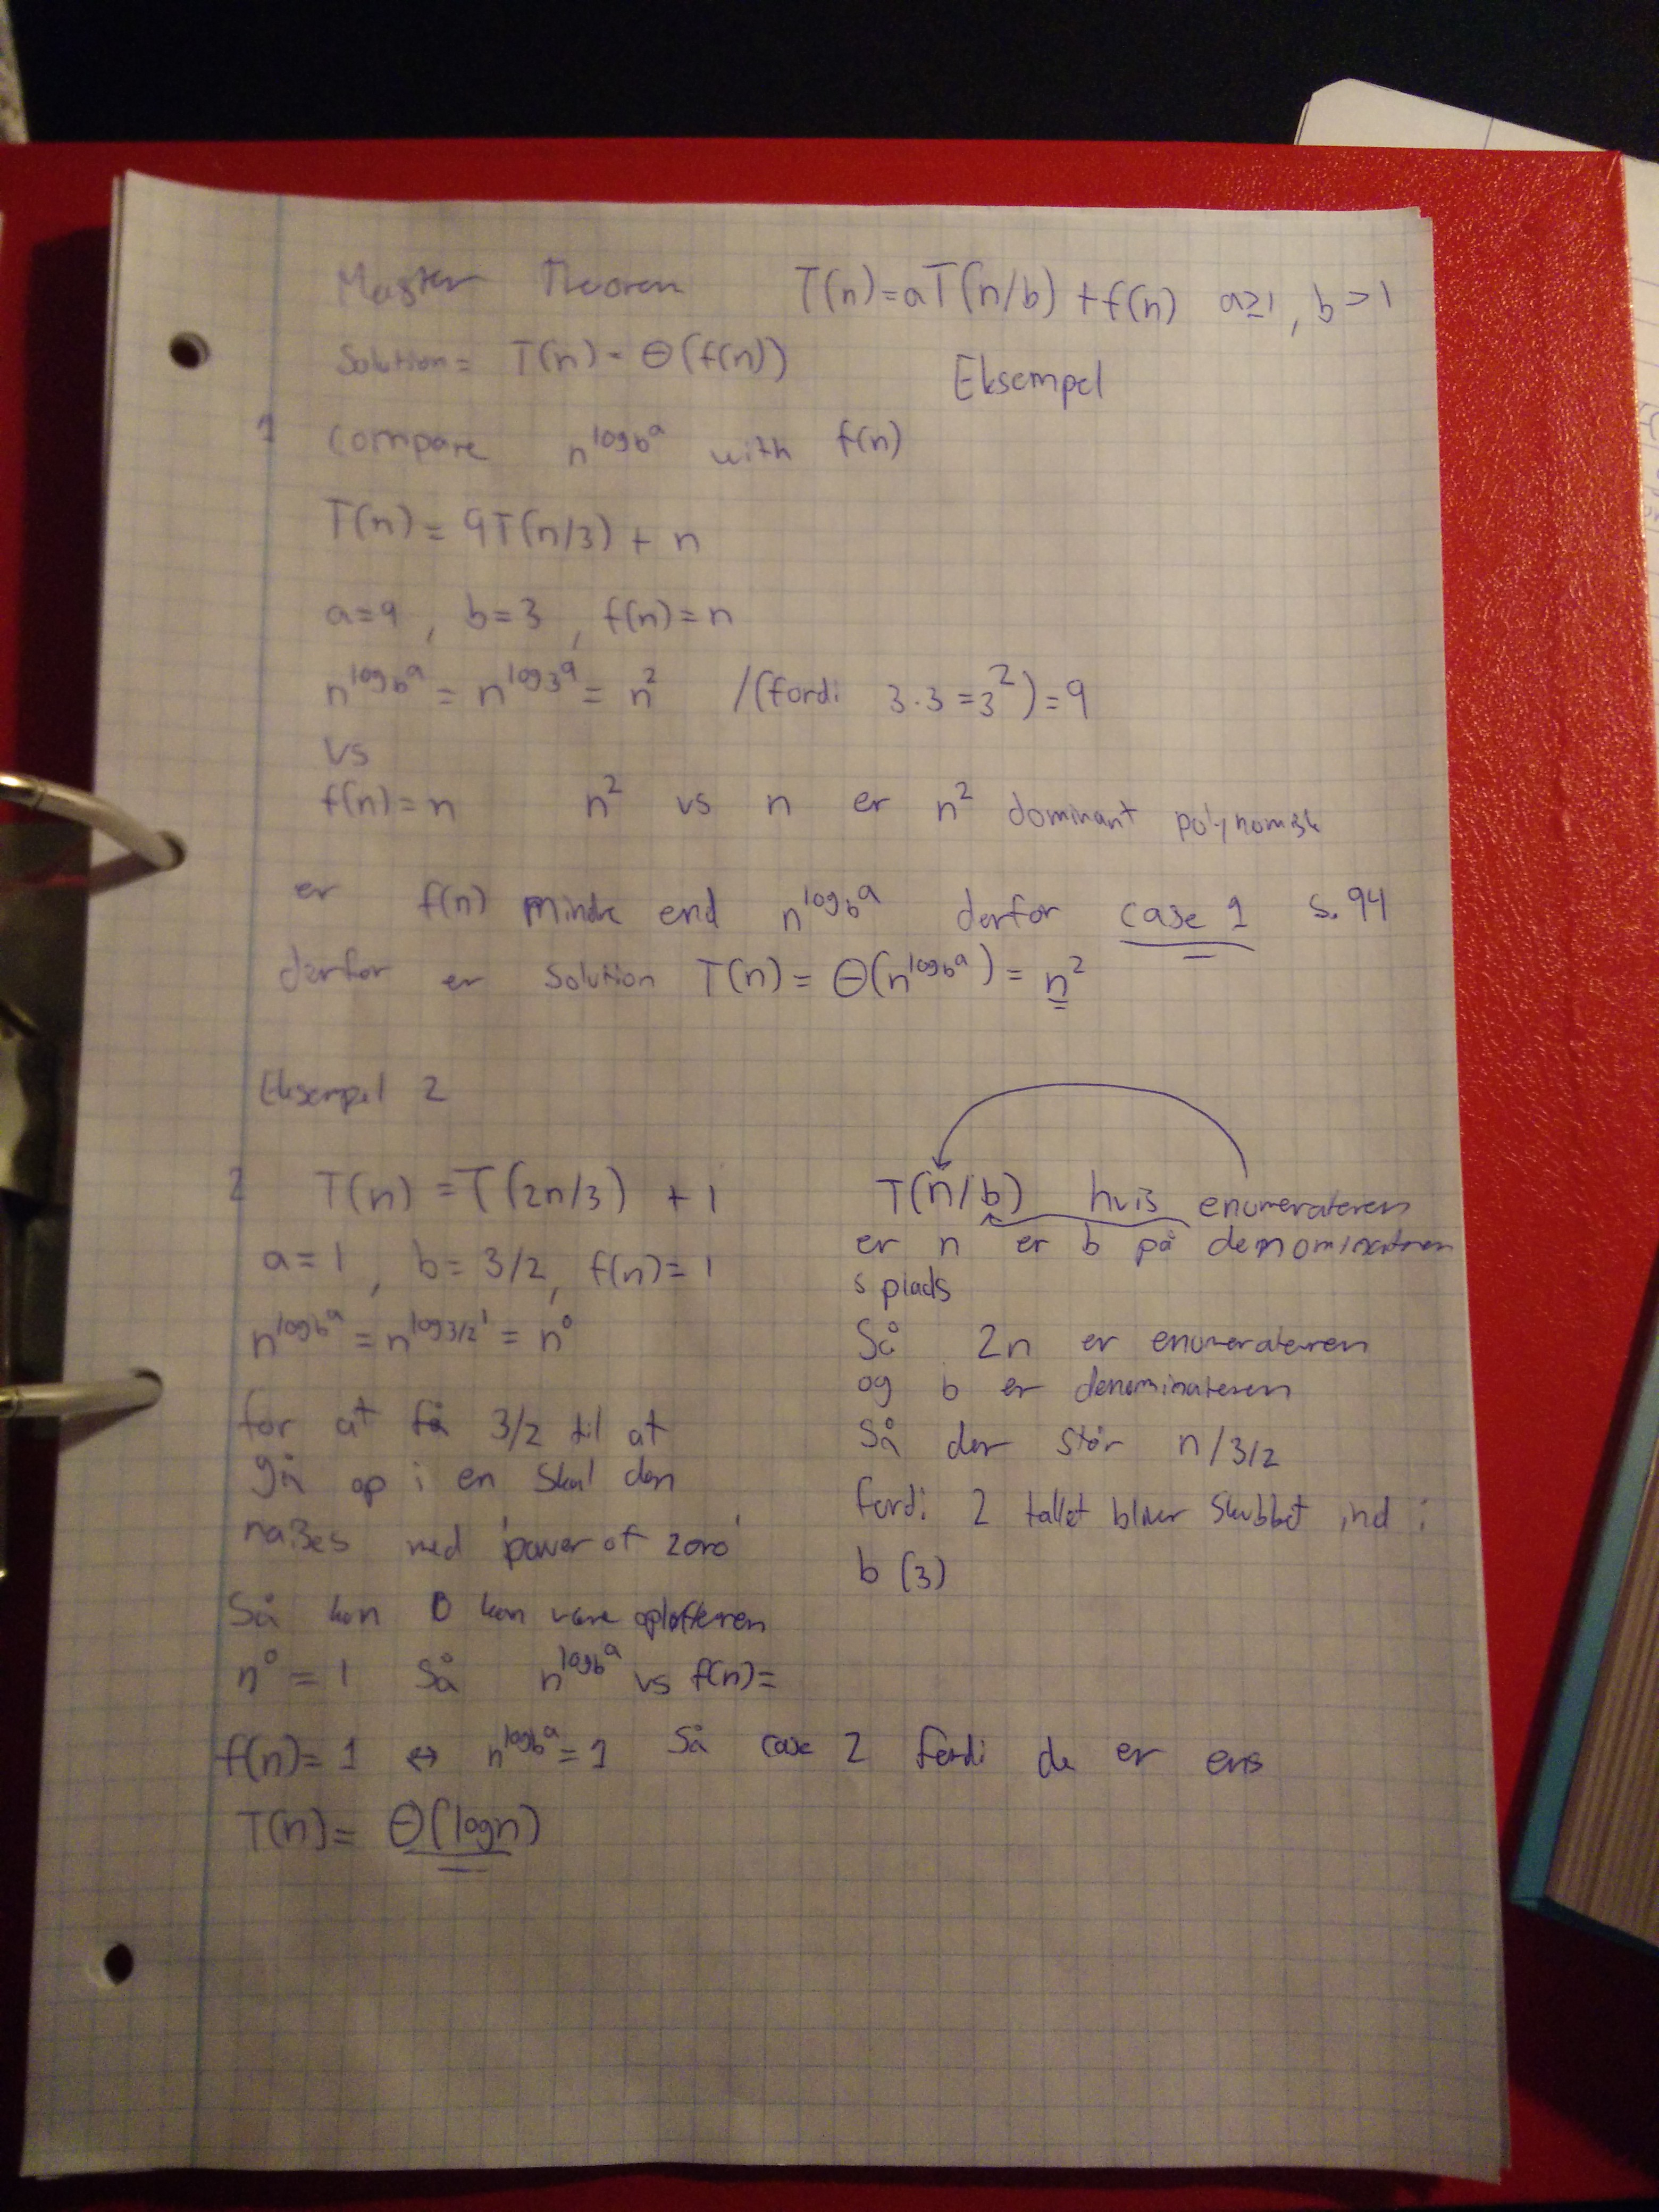 Master Theorem T(n)=aT(n/b)+f(n) a≥1, b>1
Solution= T(n)=Θ(f(n))
Eksempel
1 compare n^log_b^a with f(n)
T(n)=9T(n/3)+n
a=9, b=3, f(n)=n
n^log_b^a = n^log_3^9 = n² /(fordi 3·3=3²)=9
vs
f(n)=n n² vs n er n² dominant polynomisk
er f(n) mindre end n^log_b^a derfor case 1 s.94
derfor er solution T(n)=Θ(n^log_b^a)=n²
Eksempel 2
2 T(n)=T(2n/3)+1
a=1, b=3/2, f(n)=1
n^log_b^a = n^log_3/2^1 = n⁰
for at få 3/2 til at
gå op i en skal den
raises med 'power of zero'
Så kun 0 kan være opløfteren
n⁰=1 Så n^log_b^a vs f(n)=
f(n)=1 ↔ n^log_b^a=1 Så case 2 fordi de er ens
T(n)=Θ(logn)
T(n/b) hvis enumerateren
er n er b på denominateren
s plads
Så 2n er enumerateren
og b er denominateren
Så der står n/3/2
fordi 2 tallet bliver skubbet ind i
b (3)